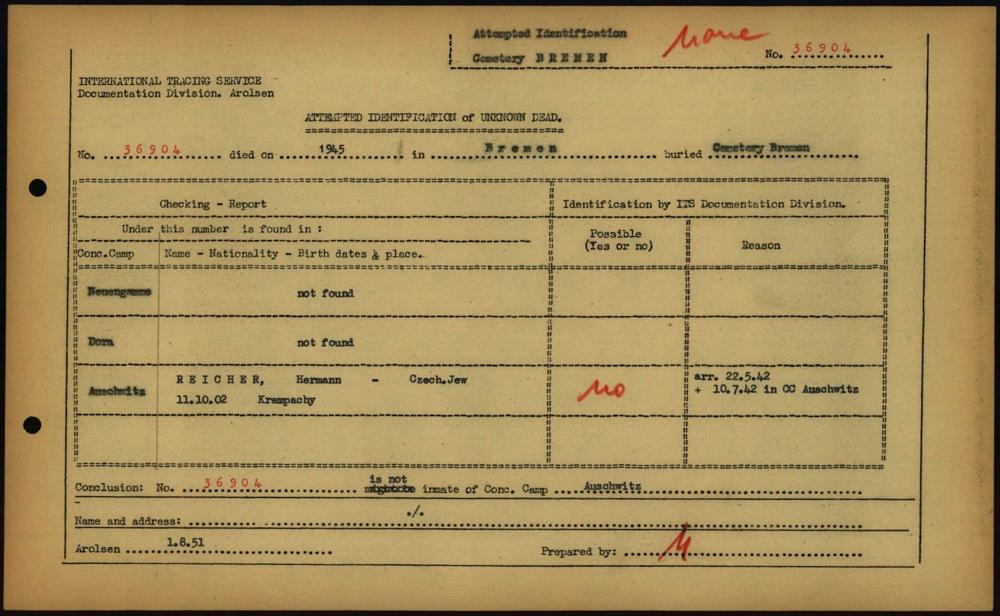 Attempted Identification
Cemetery BREMEN
None
No. 36904
INTERNATIONAL TRACING SERVICE
Documentation Division. Arolsen
ATTEMPTED IDENTIFICATION of UNKNOWN DEAD.
No. 36904 died on 1945 in Bremen buried Cemetery Bremen
Checking - Report
Identification by ITS Documentation Division.
Under this number is found in :
Possible
(Yes or no)
Reason
Conc.Camp Name - Nationality - Birth dates & place.
Neuengamme not found
Dora not found
Auschwitz
REICHER, Hermann - Czech.Jew
11.10.02 Krampachy
no
arr. 22.5.42
+ 10.7.42 in CC Auschwitz
is not
Conclusion: No. 36904 inmate of Conc. Camp Auschwitz
Name and address: ./.
Arolsen 1.8.51
Prepared by: